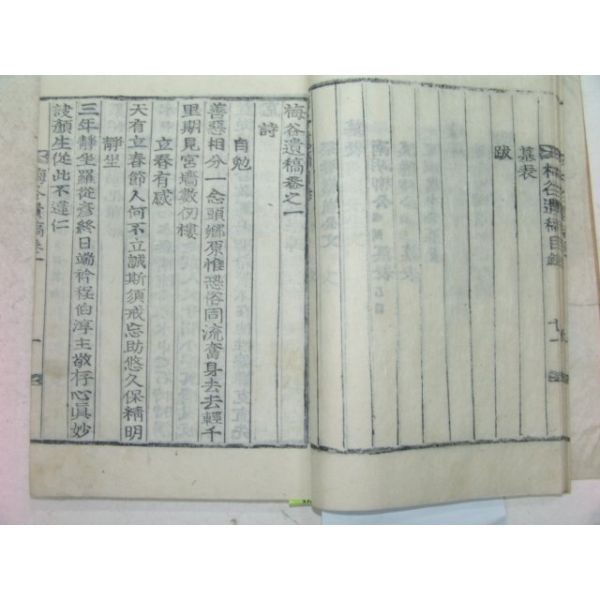 墓表
跋
梅谷遺稿卷之一
詩
自勉
善惡相分一念頭鄉原惟恐俗同流奮身去去輕千
里期見宮墻數仞樓
立春有感
天有立春節人何不立誠斯須戒忘助悠久保精明
靜坐
三年靜坐羅從彥終日端衿程伯淳主敬存心眞妙
訣顏生從此不違仁